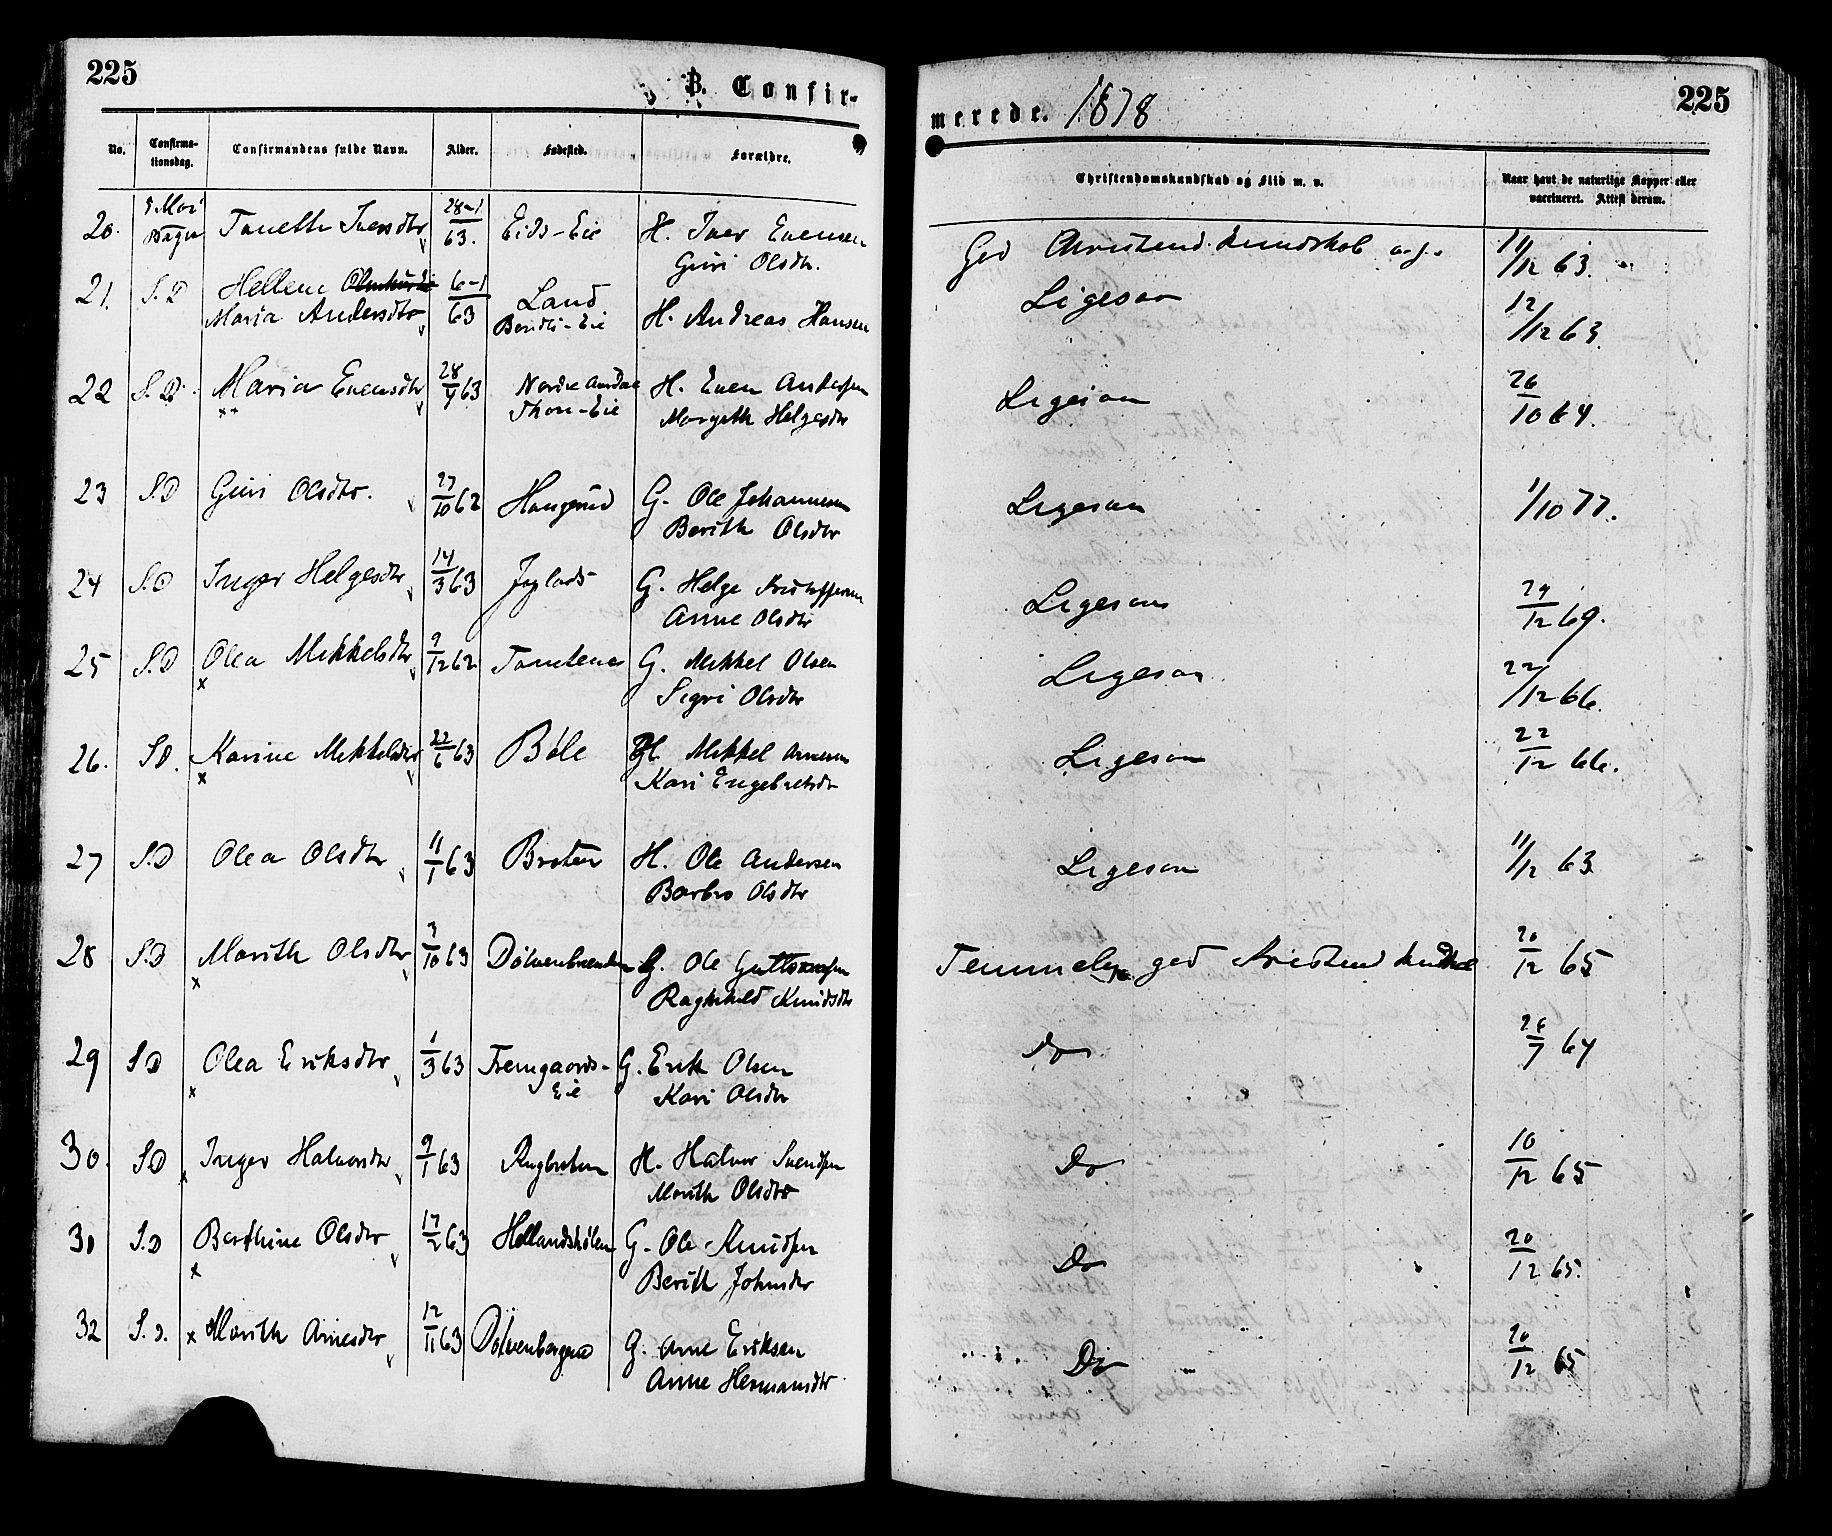 225
B. Confir-
merede. 1878
225
No.
Confirma-
tionsdag.
Confirmandens fulde Navn.
Alder.
Fødested.
Forældre.
Christendomskundskab og Flid m. v.
Naar havt de naturlige Kopper eller
vaccineret. Attest derom.
20. 5 Mai Bagn Iversdtr 28-1/63. Eids-Eie H. Iver Evensen
Guri Olsdtr.
God Christend. kundskab 11/12 63.
21. S.D Hellene
Maria Andersdtr 6-1/63 Land
Eie H. Andreas Hansen
Ligesaa 12/12 63.
22 S.D. Maria Evensdtr 28/4 63 Nordre Aurdal
Thon-Eie H. Even Andersen
Margith Helgesdtr
Ligesaa 26/10 64.
23 S.D Guri Olsdtr. 27/10 62 Haugerud G. Ole Johannesen
Berith Olsdtr
Ligesaa 1/10 77.
24 S.D Inger Helgesdtr 14/3 63 G. Helge
Anne Olsdtr
Ligesaa 29/12 69.
25 S.D Olea Mikkelsdtr 9/12 62 G. Mikkel Olsen
Sigri Olsdtr
Ligesaa 22/12 66.
26. S.D. Karine Mikkelsdtr 22/6 63 Bøle H. Mikkel Arnesen
Kari Engebretsdtr
Ligesaa 22/12 66.
27 S.D Olea Olsdtr 11/1 63 Braten H. Ole Andersen
Barbro Olsdtr
Ligesaa 11/12 63
28 S.D x Marith Olsdtr 3/10 63 G. Ole Guttormsen
Ragnhild Knudsdtr
Temmelig god Kristend kundskab 20/12 65
29 S.D x Olea Eriksdtr 1/3 63 Fremgaards-
Eie G. Erik Olsen
Kari Olsdtr
Do 26/7 64
30. S.D x Inger Halvorsdtr 9/1 63 H. Halvor Svendsen
Marith Olsdtr
Do 10/12 65
31 S.D x Berthine Olsdtr 17/2 63 G. Ole Knudsen
Berith Johnsdtr
Do 20/12 65.
32 S.D. x Marith Arnesdtr 12/11 63 G. Arne Eriksen
Anne Hermansdtr
Do 20/12 65